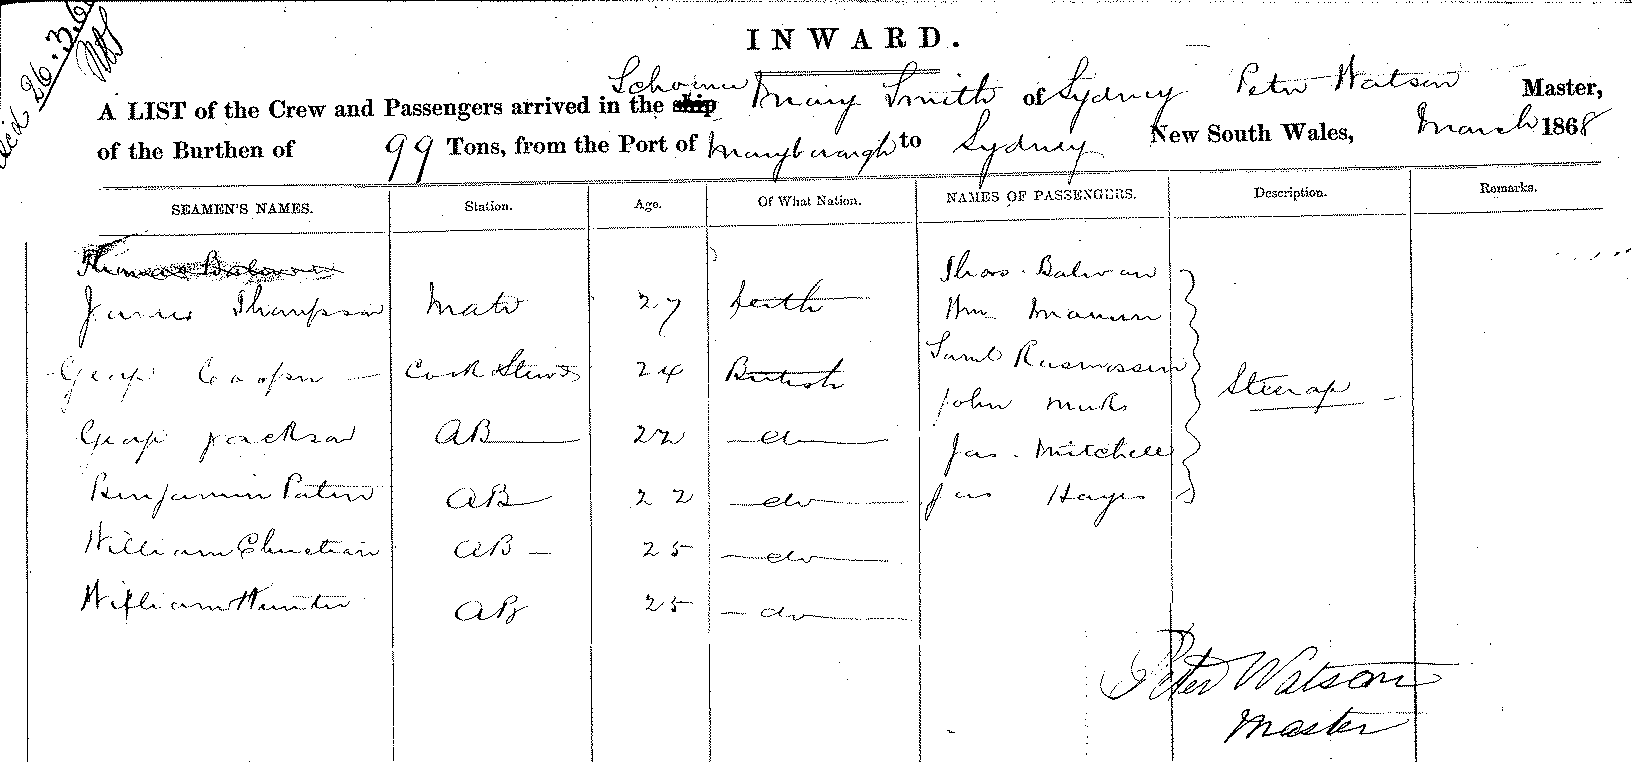 26.3.6
INWARD.
Schooner
A LIST of the Crew and Passengers arrived in the ship Mary Smith of Sydney Peter Watson Master,
of the Burthen of 99 Tons, from the Port of Maryborough to Sydney New South Wales, March 1868
SEAMEN'S NAMES. Station. Age. Of What Nation. NAMES OF PASSENGERS. Description. Remarks.
Thomas
James Thompson Mate 27 Leith
George Cooper Cook Stewd 24 British
George Jackson AB 22 do
Benjamin AB 22 do
William Christian AB 25 do
William Hunter AB 25 do
Thos.
Wm
Saml Rasmossen
John
Jas. Mitchell
Jas Hayes
Steerage
Peter Watson
Master